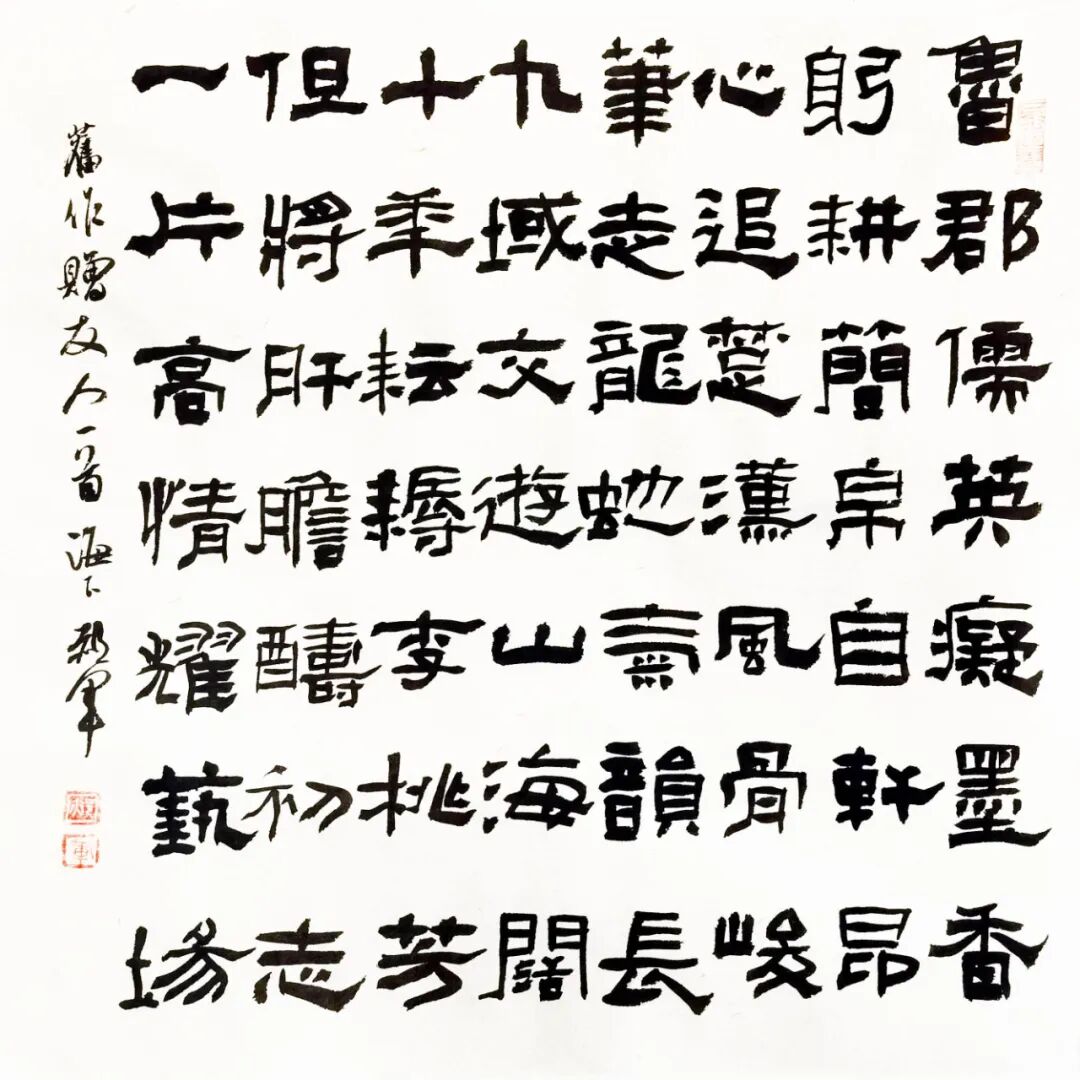 魯郡儒英癡墨香
躬耕簡帛自軒昂
心追楚漢風骨峻
筆走龍蛇氣韻長
九域交遊山海闊
十年耘耨李桃芳
但將肝膽酬初志
一片高情耀藝場
舊作贈友人一首 海下 軍